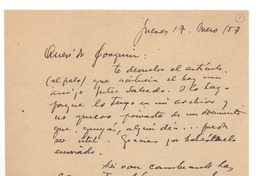 Jueves 17. Enero / 57
Querido Joaquín:
te devuelvo el artículo
(el foto) que escribiera el hoy mi
amigo Julio Salcedo. Lo hago
porque lo tengo en mi archivo y
no quiero privarte de un documento
que, quizás, algún día... puede
ser útil. Gracias por habérmelo
enviado.
Así van cambiando las